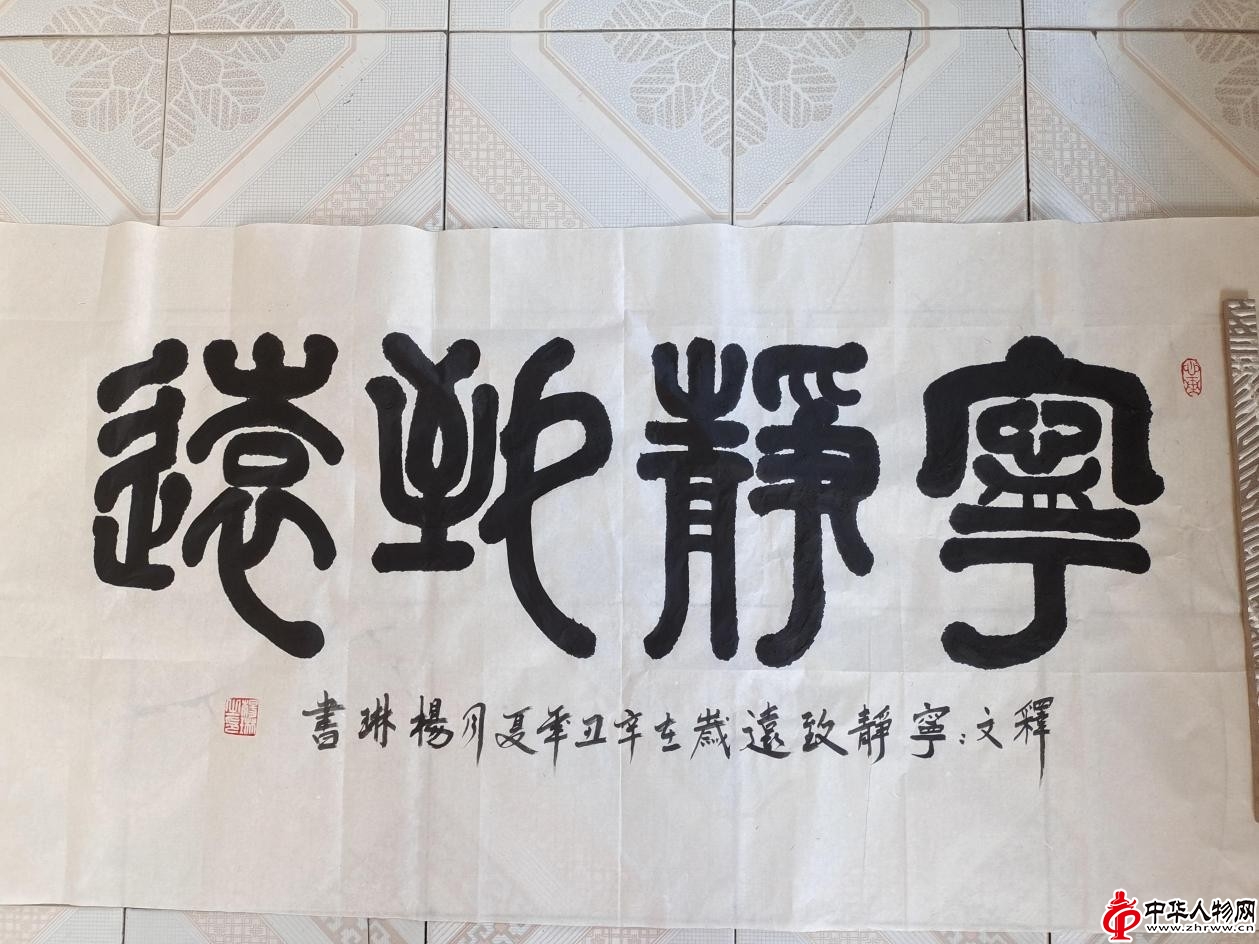 寧靜致遠
釋文：寧靜致遠歲在辛丑年夏月楊琳書
中华人物网
www.zhrww.cn